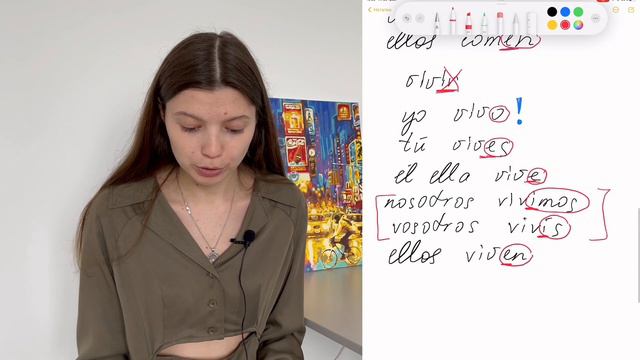 ellos comen
vivir
yo vivo!
tú vives
él ella vive
nosotros vivimos
vosotros vivís
ellos viven